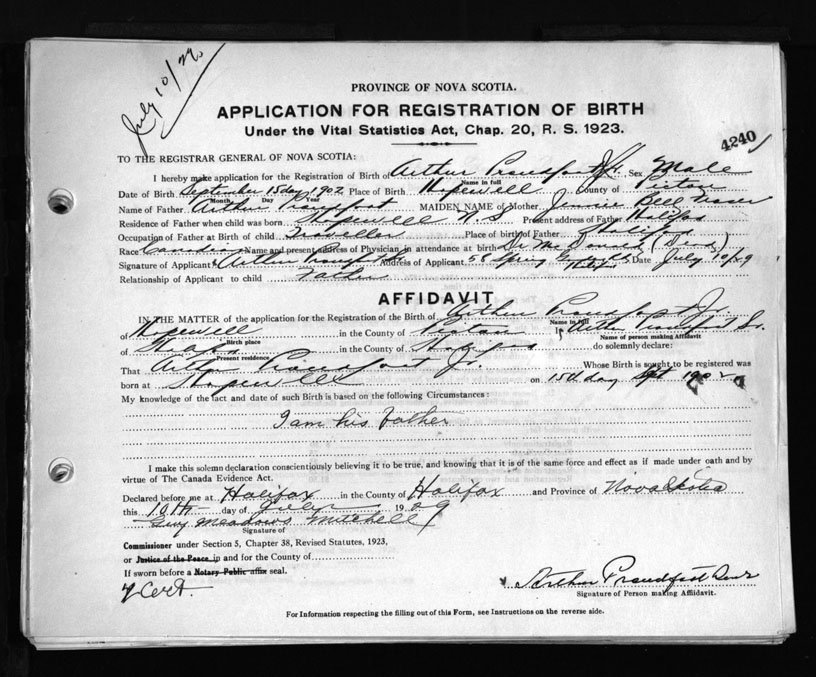 July 10/29
PROVINCE OF NOVA SCOTIA.
APPLICATION FOR REGISTRATION OF BIRTH
Under the Vital Statistics Act, Chap. 20, R. S. 1923.
4240
TO THE REGISTRAR GENERAL OF NOVA SCOTIA:
I hereby make application for the Registration of Birth of Arthur Proudfoot Jr. Sex Male
Name in full
Date of Birth September 15 day 1902 Place of Birth Hopewell County of Pictou
Month Day Year
Name of Father Arthur Proudfoot MAIDEN NAME of Mother Jennie Bell Fraser
Residence of Father when child was born Hopewell N.S Present address of Father Halifax
Occupation of Father at Birth of child Traveller Place of birth of Father Halifax
Race Canadian Name and present address of Physician in attendance at birth Dr McDonald (Dead)
Signature of Applicant Arthur Proudfoot Address of Applicant 58 Spring Halifax Date July 10/29
Relationship of Applicant to child Father
AFFIDAVIT
IN THE MATTER of the application for the Registration of Birth of Arthur Proudfoot Jr.
Name in full
of Hopewell in the County of Pictou I, Arthur Proudfoot Sr.
Birth place Name of person making Affidavit
of Halifax in the County of Halifax do solemnly declare:
Present residence
That Arthur Proudfoot Jr. Whose Birth is sought to be registered was
born at Hopewell on 15th day Sept 1902
My knowledge of the fact and date of such Birth is based on the following Circumstances:
I am his father
I make this solemn declaration conscientiously believing it to be true, and knowing that it is of the same force and effect as if made under oath and by
virtue of The Canada Evidence Act.
Declared before me at Halifax in the County of Halifax and Province of Nova Scotia
this 10th day of July 1929
Guy Meadows Mitchell
Signature of
Commissioner under Section 5, Chapter 38, Revised Statutes, 1923,
or Justice of the Peace in and for the County of
If sworn before a Notary Public affix seal.
Cert.
Arthur Proudfoot Senr
Signature of Person making Affidavit.
For Information respecting the filling out of this Form, see Instructions on the reverse side.